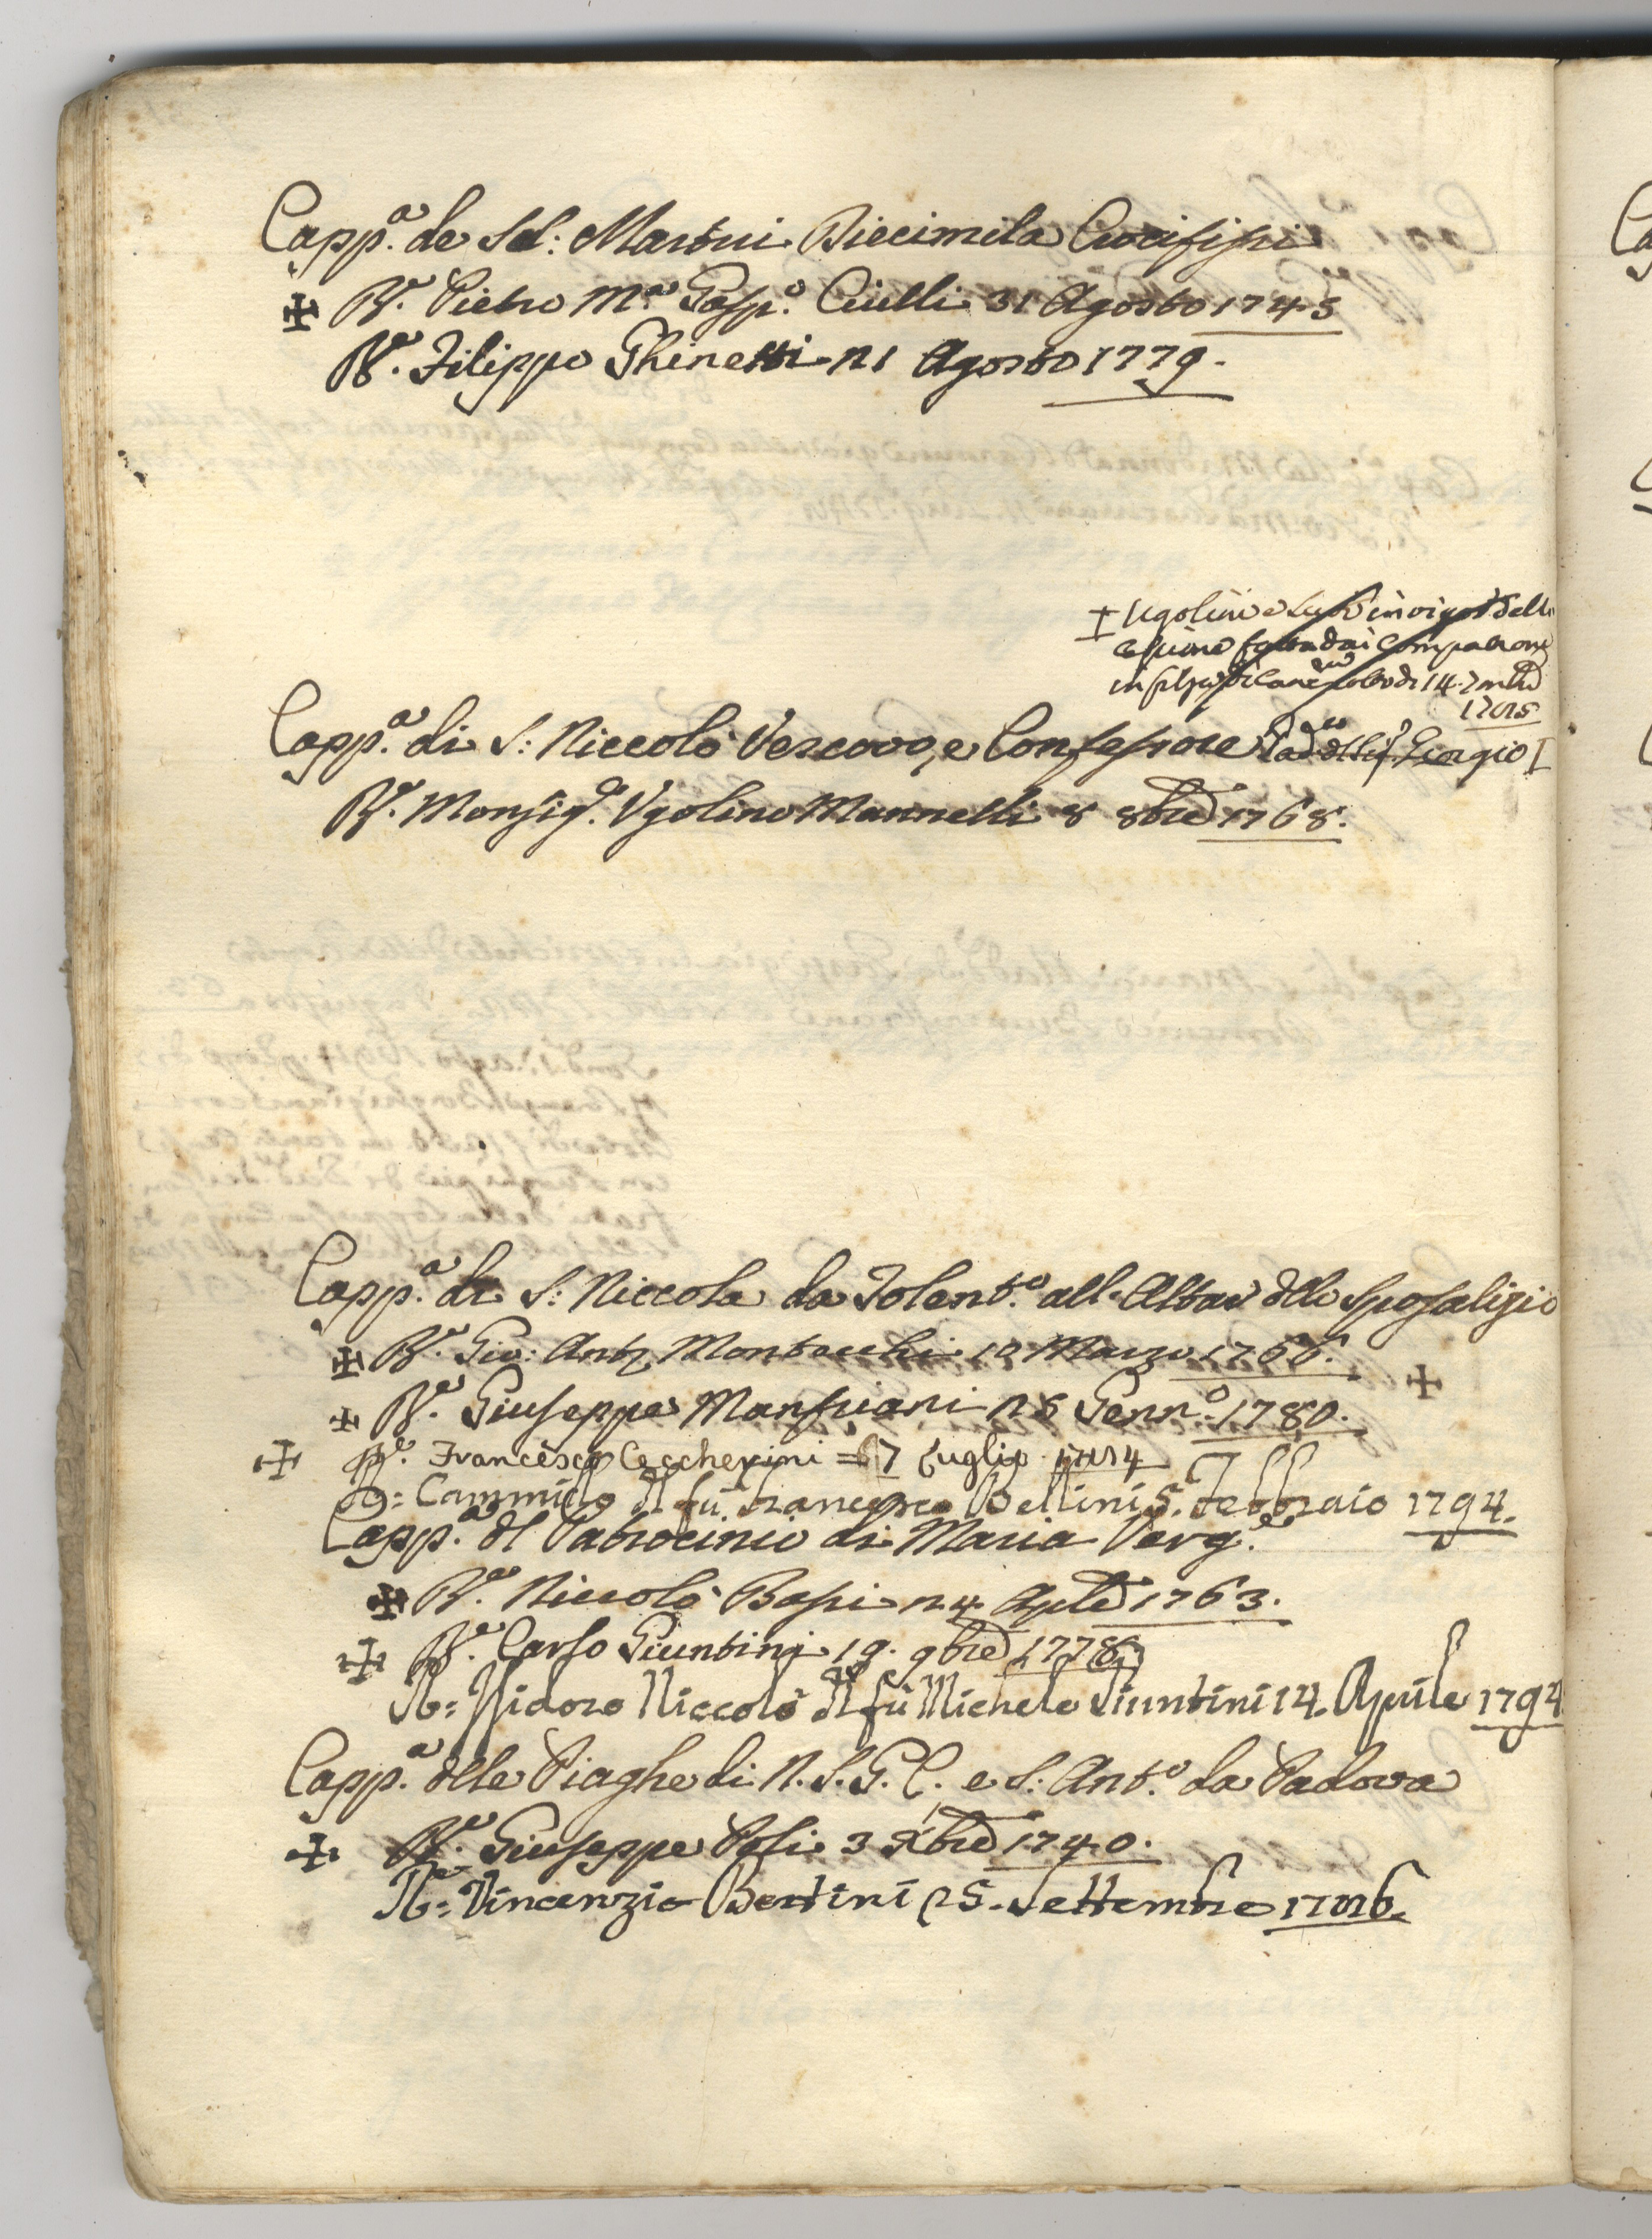 Capp.a de SS: Martiri Diecimila Crocifissi
✠ R.e Pietro M.a Gasp.o Ciulli 31 Agosto 1745
R.e Filippo Ghinetti 21 Agosto 1779.
Ugolini e
cessione fatta dai Compatroni
14. 7mbre
1785
Capp.a di S: Niccolò Vescovo, e Confessore Giorgio
R.e Monsig.r Ugolino Mannelli 8 8bre 1768.
Capp.a di S: Niccola da Tolent.o all'Altar dello Sposalizio
✠ R.e Gio: Ant.o Montecchi 10 Marzo 1766.
✠ R.e Giuseppe Mansuani 26 Genn.o 1780. ✠
✠ R.e Francesco Ceccherini = 17 Luglio 1784
R.e = Cammillo del fù Francesco Bellini 5. Febbraio 1794.
Capp.a del Patrocinio di Maria Verg.e
✠ R.e Niccolò Bassi 24 Aple 1763.
✠ R.e Carlo Giuntini 19. 9bre 1778.
R.e = Isidoro Niccolò del fù Michele Giuntini 14. Aprile 1794
Capp.a delle Piaghe di N. S. G. C. e S: Ant.o da Padova
✠ R.e Giuseppe Poli 3 Xbre 1740.
R.e = Vincenzio Bertini 25. Settembre 1786.